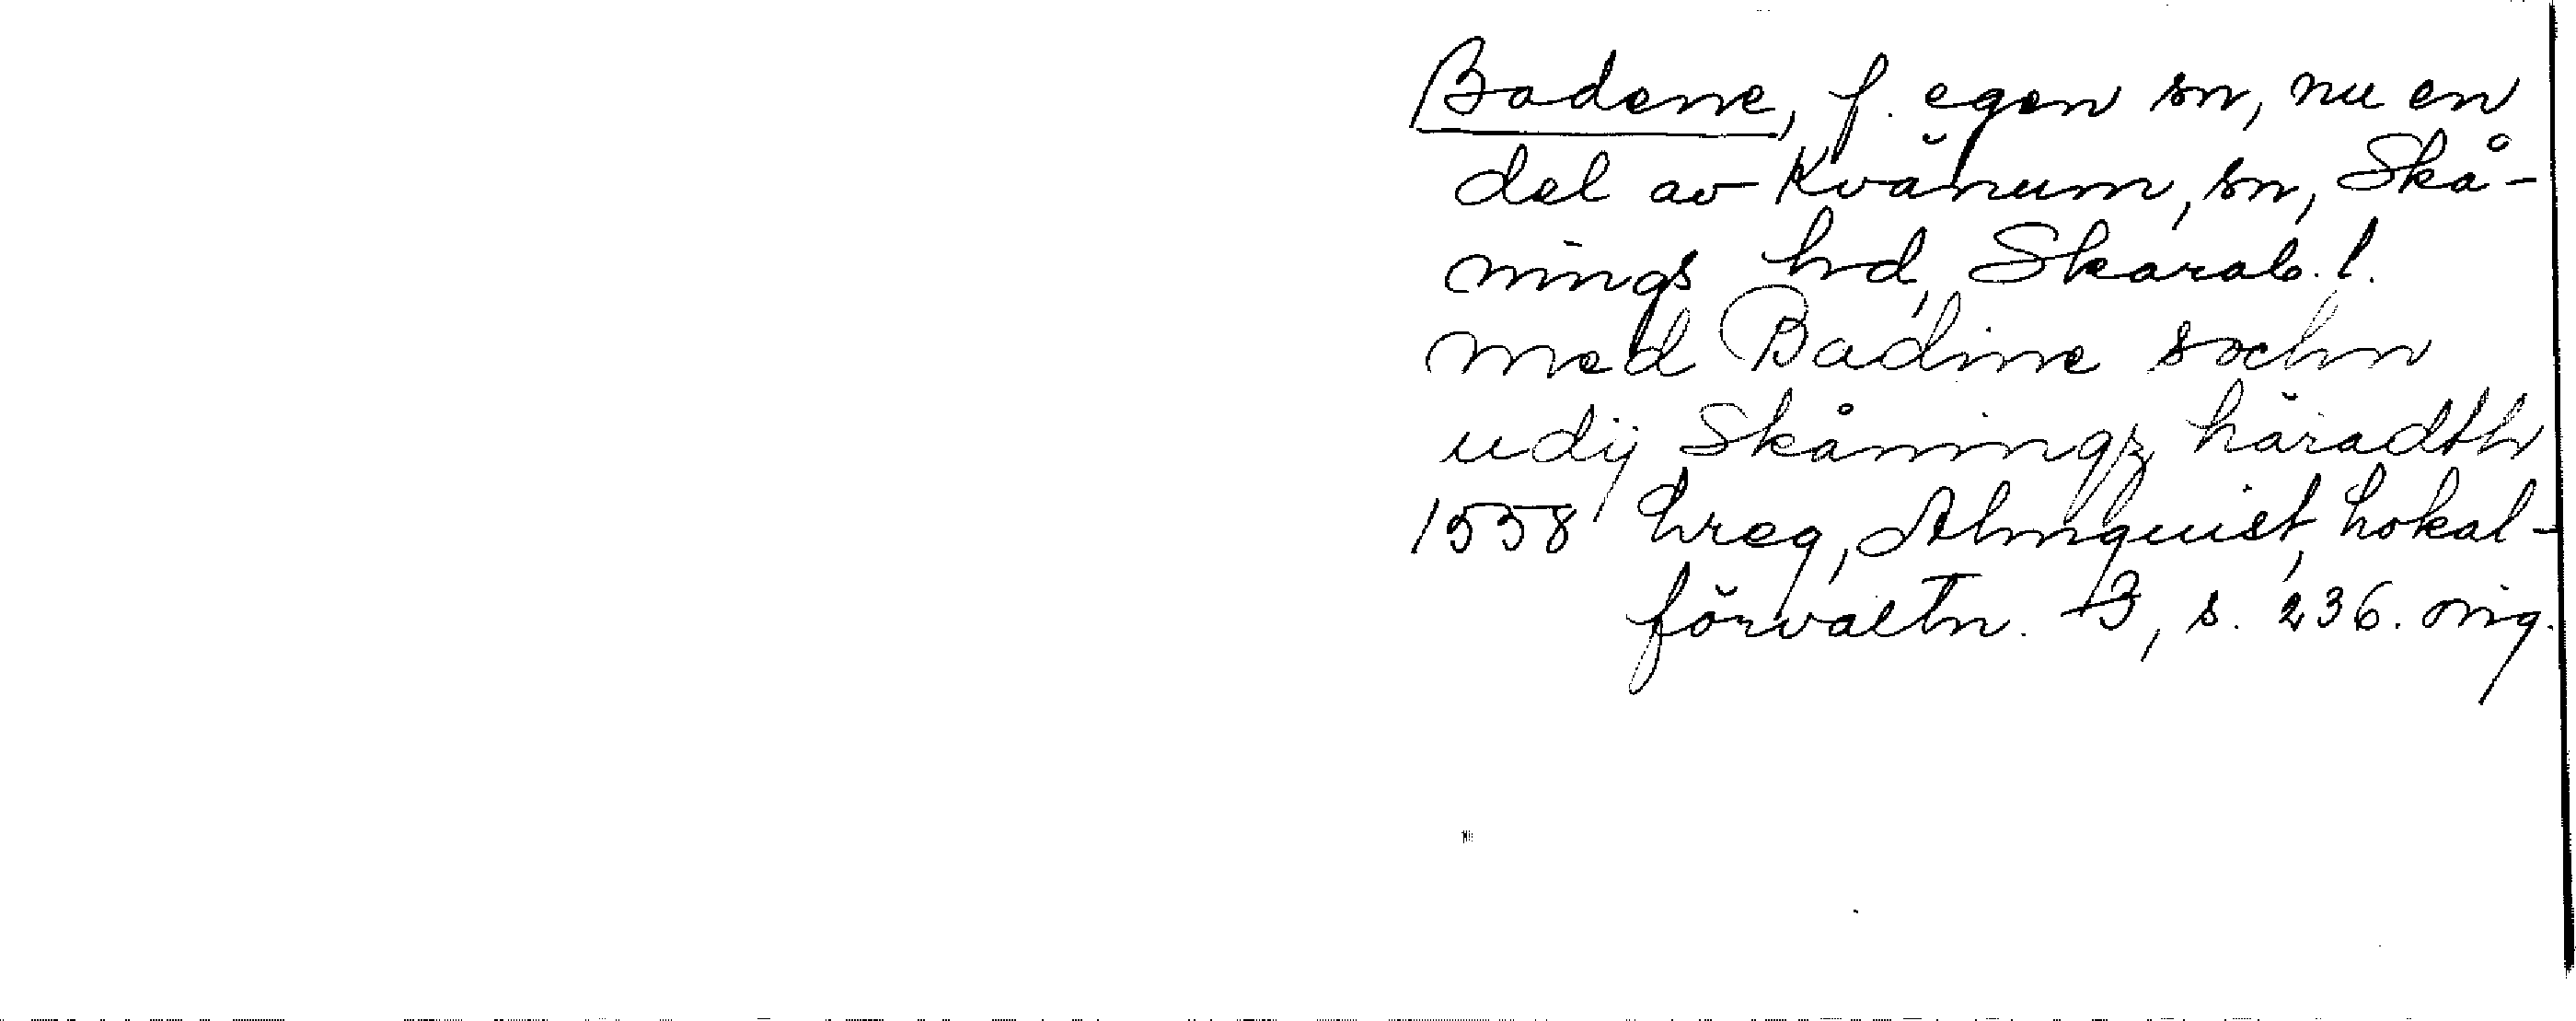 Badene, f. egen sn, nu en
del av Kvänum, sn, Skå-
nings hd, Skarab. l.
med Badine sochn
udij Skåningz häradth
1558 hreg, Almquist, Lokal-
förvaltn. 3, s. 236. orig.